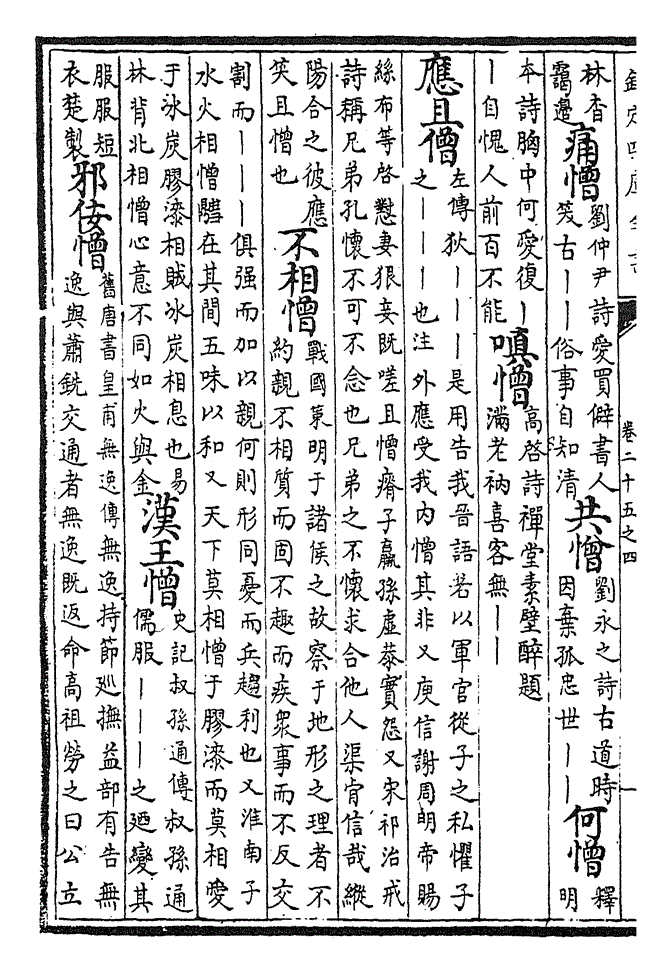 欽定四庫全書
卷二十五之四
林杳
靄邊
痛憎
劉仲尹詩愛買僻書人
笑古——俗事自知清
共憎
劉永之詩古道時
因棄孤忠世——
何憎
釋
明
本詩胸中何愛復—
—自愧人前百不能
嗔憎
高啓詩禪堂素壁醉題
滿老衲喜客無——
應且憎
左傳狄———是用告我晉語若以軍官從子之私懼子
之———也注外應受我内憎其非又庾信謝周明帝賜
絲布等啓懟妻狠妾既嗟且憎瘠子羸孫虛恭實怨又宋祁治戒
詩稱兄弟孔懷不可不念也兄弟之不懷求合他人渠肯信哉縱
陽合之彼應
笑且憎也
不相憎
戰國策明于諸侯之故察于地形之理者不
約親不相質而固不趣而疾衆事而不反交
割而———俱强而加以親何則形同憂而兵趨利也又淮南子
水火相憎在其間五味以和又天下莫相憎于膠漆而莫相愛
于冰炭膠漆相賊冰炭相息也易
林背北相憎心意不同如火與金
漢王憎
史記叔孫通傳叔孫通
儒服———之廼變其
服服短
衣楚製
邪佞憎
舊唐書皇甫無逸傳無逸持節廵撫益部有告無
逸與蕭銑交通者無逸既返命高祖勞之曰公立